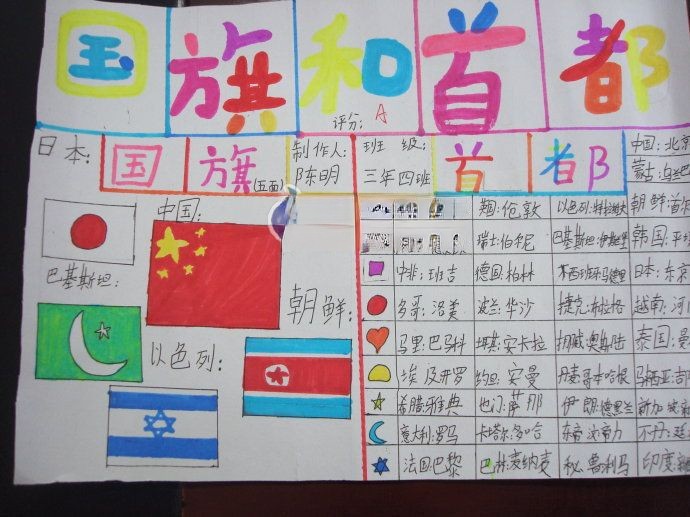 国旗和首都
评分:A
日本:
国旗(五面)
制作人:
陈明
班 级:
三年四班
首都
中国:北京
蒙古:乌兰巴
中国:
巴基斯坦:
朝鲜:
以色列:
伦敦 以色列:特拉维夫 朝鲜:首
瑞士:伯尔尼 巴基斯坦:伊斯兰堡 韩国:平
中非:班吉 德国:柏林 西班牙:马德里 日本:东京
多哥:洛美 波兰:华沙 捷克:布拉格 越南:河
马里:巴马科 安卡拉 挪威:奥斯陆 泰国:曼
埃及开罗 约旦:安曼 丹麦:哥本哈根 马来西亚:吉
希腊:雅典 也门:萨那 伊朗:德黑兰 新加坡
意大利:罗马 卡塔尔:多哈 东帝汶:帝力 不丹:廷
法国:巴黎 巴林:麦纳麦 秘鲁利马 印度:新